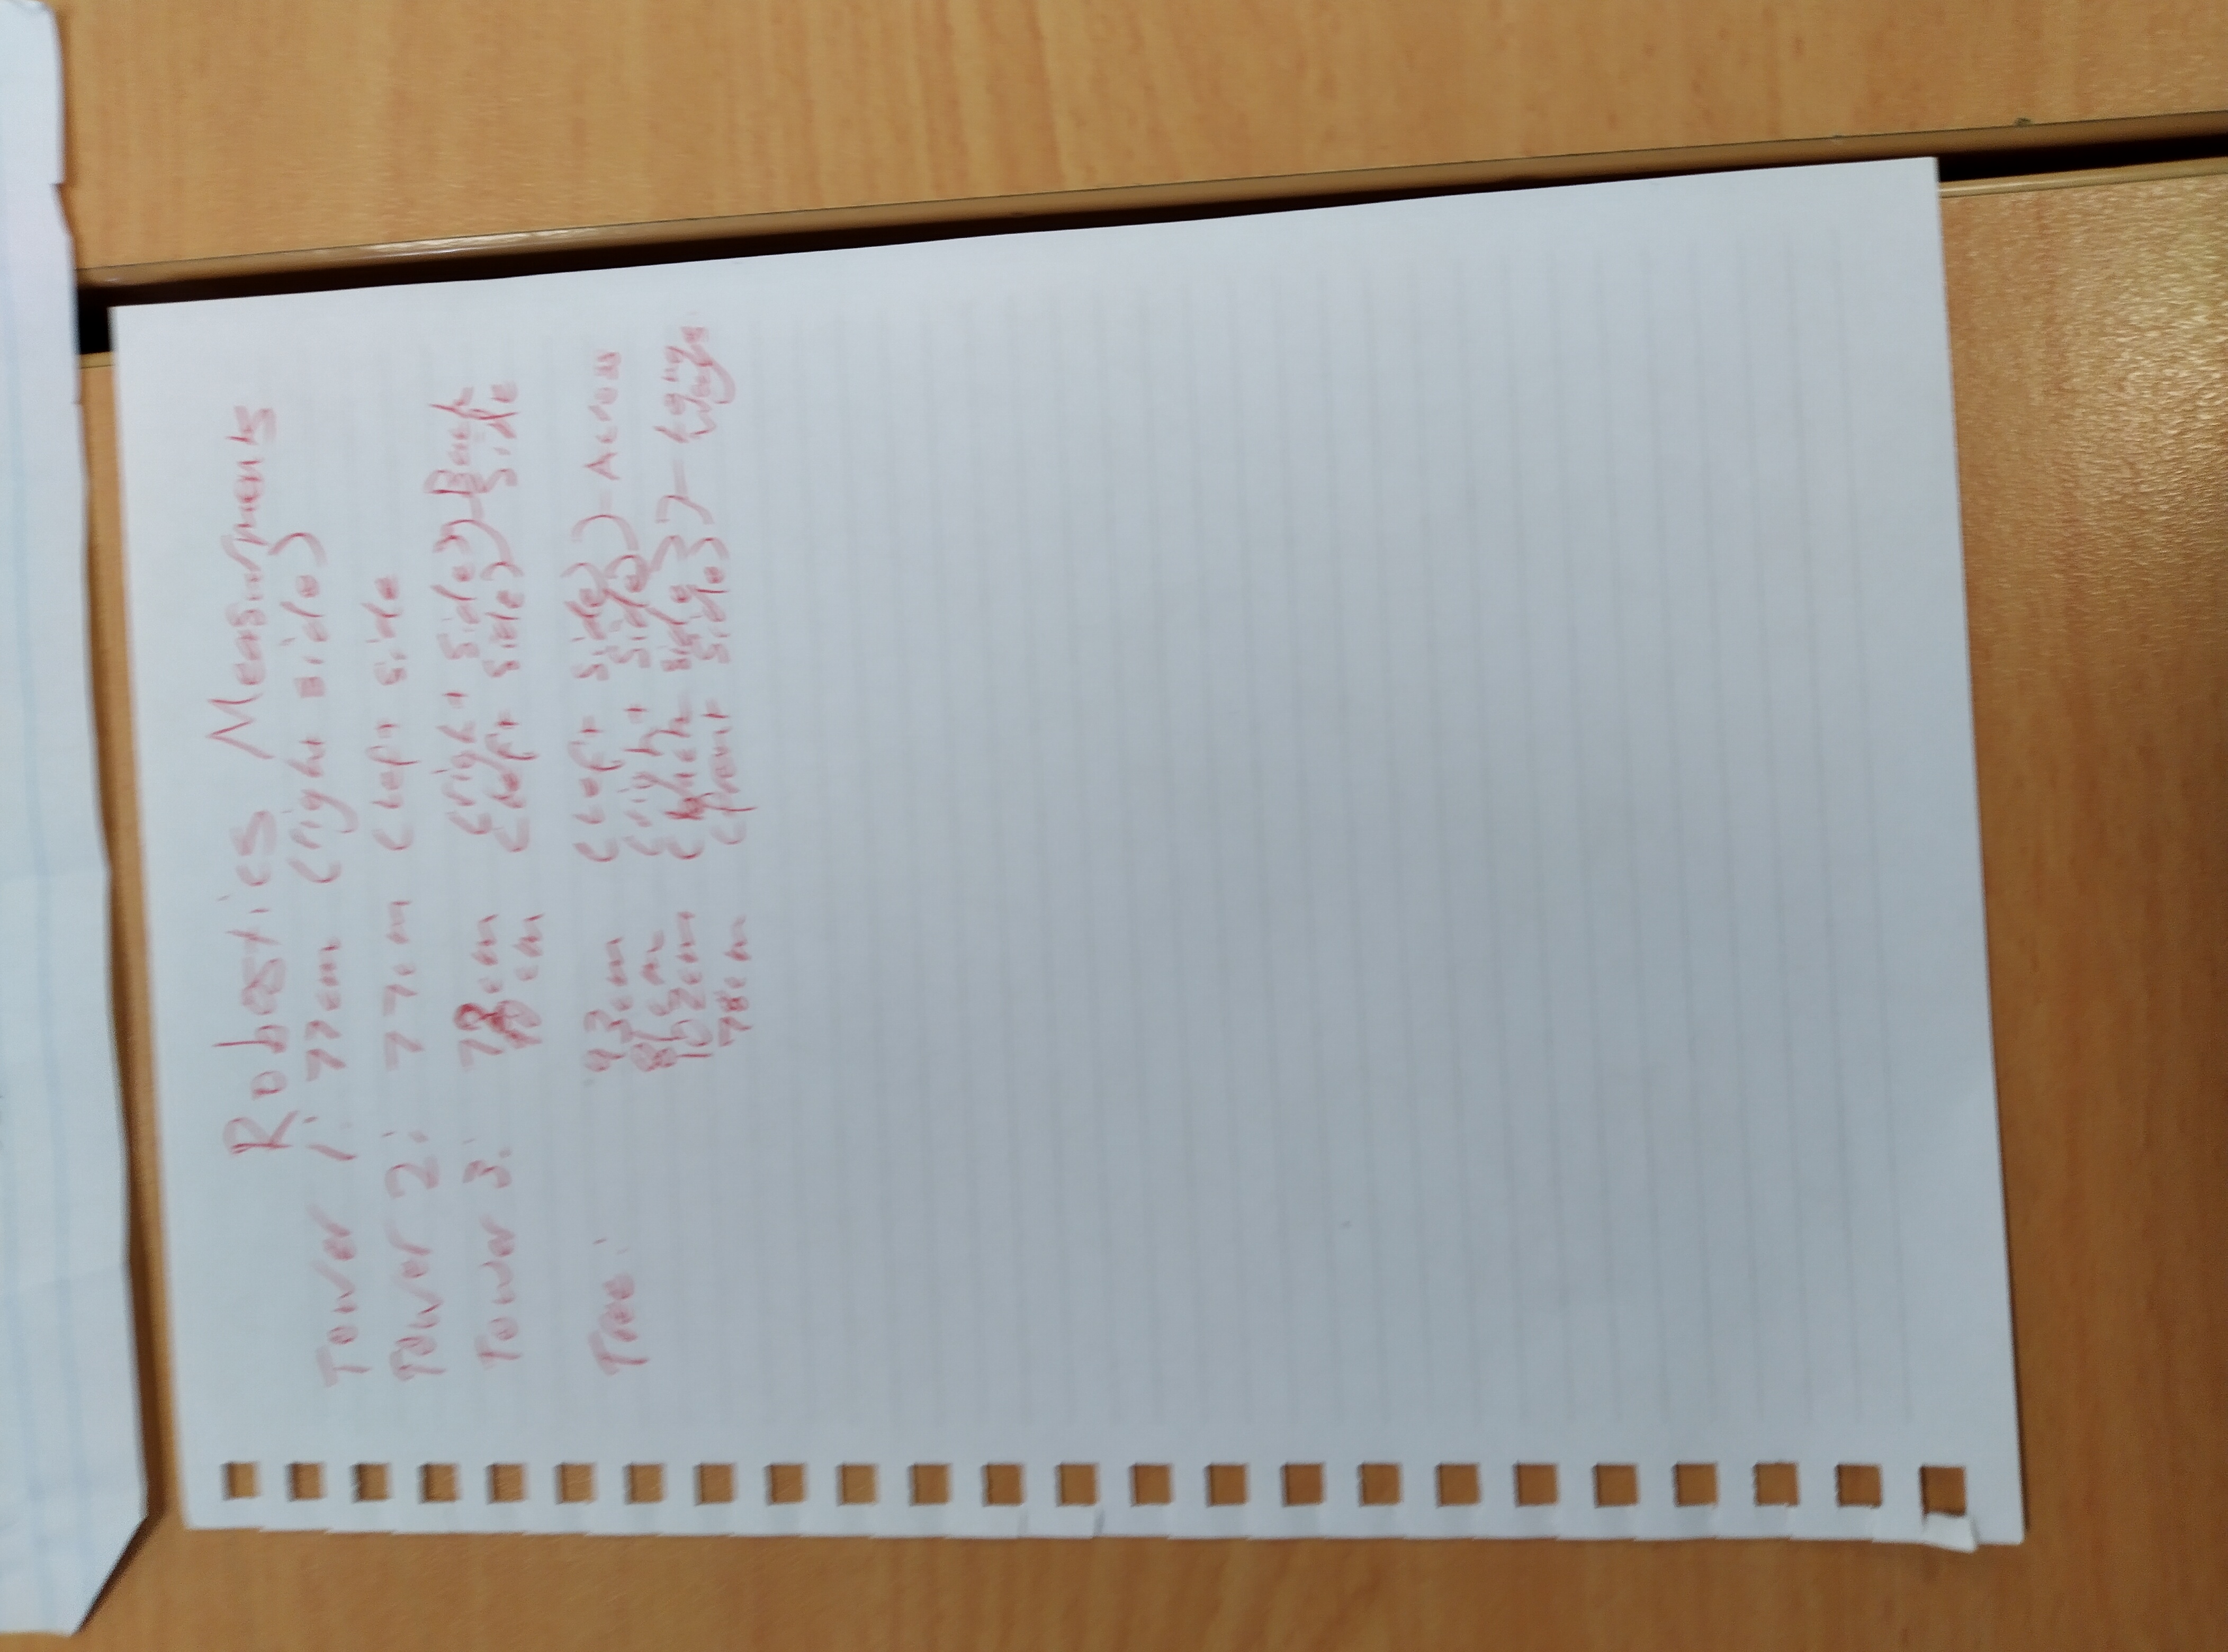 Robostics Measurments
Tower 1: 77cm (right side)
Tower 2: 77cm (left side
Tower 3: 78cm (right side) - Back
cm (left side) side
Tree: 93cm (left side)
cm (right side) - Across
102cm side
78cm (front side) - Long